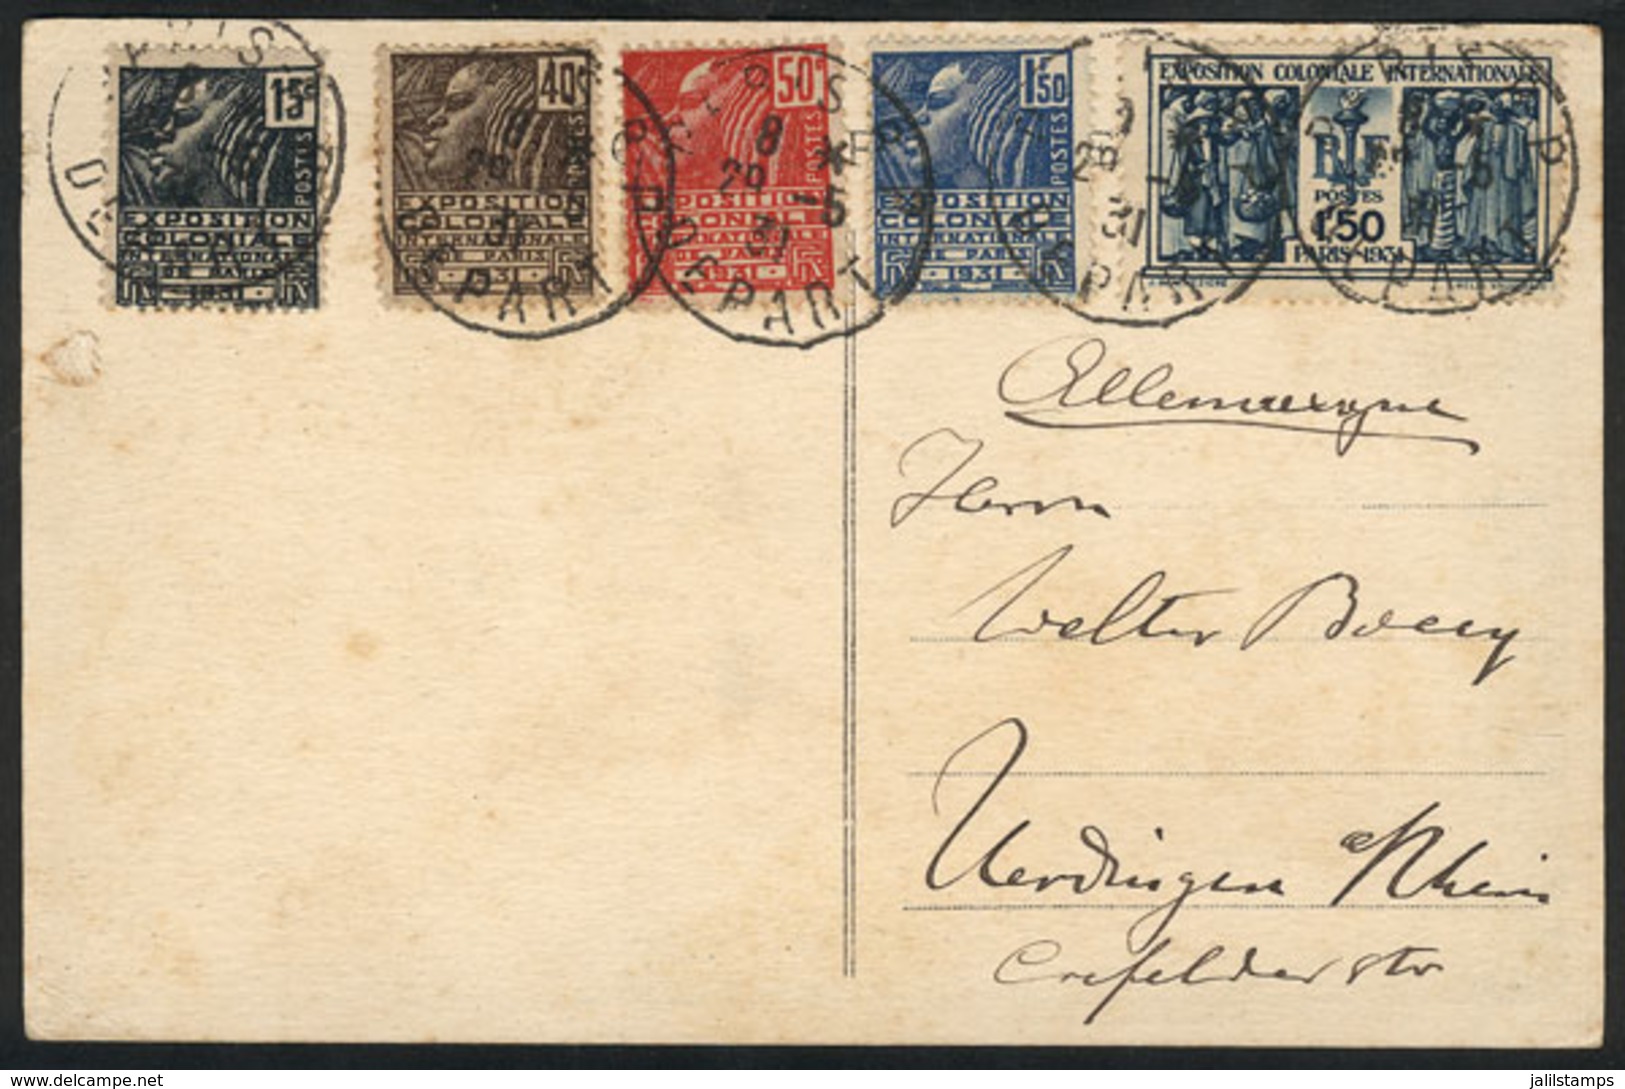 15c
POSTES
EXPOSITION
COLONIALE
INTERNATIONALE
DE PARIS
1931
40c
POSTES
EXPOSITION
COLONIALE
INTERNATIONALE
DE PARIS
1931
50c
POSTES
EXPOSITION
COLONIALE
INTERNATIONALE
DE PARIS
1931
1f50
POSTES
EXPOSITION
COLONIALE
INTERNATIONALE
DE PARIS
1931
EXPOSITION COLONIALE INTERNATIONALE
RF
POSTES
1f50
PARIS-1931
PARIS
DEPART
DEPART
8
29 -5
31
DEPART
29
31
DEPART
DEPART
Allemagne
Herrn
Walter
Uerdingen a/Rhein
Crefelder str
delcampe.net
jalilstamps